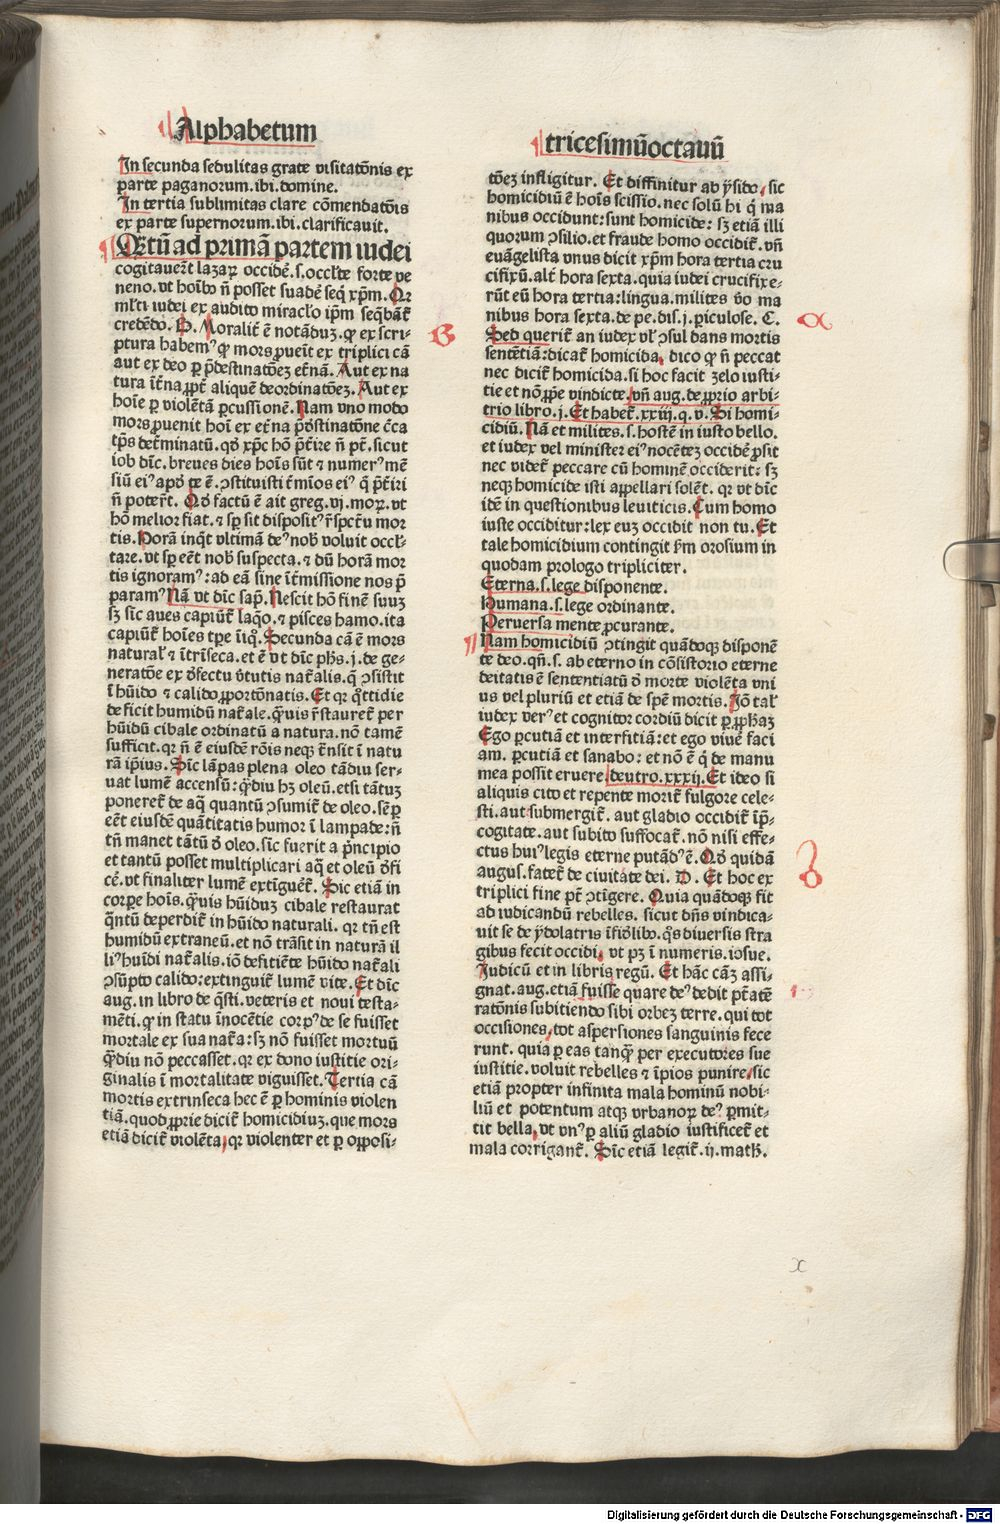 Alphabetum
In secunda sedulitas grate visitatōnis ex
parte paganorum.ibi.domine.
In tertia sublimitas clare cōmendatōis
ex parte supernorum.ibi.clarificauit.
Qꝛtū ad primā partem iudei
cogitauer̄t lazaꝝ occidē.s.occl̄te forte ve
neno.vt hoi͂b9 n̄ posset suadē seq̄ xp̄m. Qꝛ
ml̄ti iudei ex audito miracl̓o ip̄m seq̄bāt᷑
credēdo. B. Moralit᷑ ē notāduꝫ. ꝙ ex scri-
ptura habemꝰ ꝙ mors ꝓuēit ex triplici cā
aut ex deo ꝑ p̄destinatōeꝫ et᷑nā. Aut ex na
tura īt᷑na ꝓpt᷑ aliquē deordinatōeꝫ. Aut ex
hoīe ꝑ violētā ꝑcussionē. Nam vno modo
mors ꝓuenit hoī ex et᷑na p̄destinatōne c̄ca
tp̄s det᷑minatū. qđ xp̄c hō p̄t᷑ire n̄ pt̄. sicut
iob dīc. breues dies hoīs sūt ⁊ numerꝰ mē
siū eiꝰ apđ te ē. ꝯstituisti t᷑mīos eiꝰ q̄ p̄t᷑iri
n̄ poter̄t. Qđ factū ē ait greg. vj. moꝝ. vt
hō melior fiat. ⁊ sꝑ sit dispositꝰ r̄spc̄tu mor
tis. Horā inq̄t vltimā deꝰ nob̄ voluit occl̄-
tare. vt sꝑ eēt nob̄ suspecta. ⁊ dū horā mor
tis ignoramꝰ: ad eā sine īt᷑missione nos p̄
paramꝰ Nā vt dīc sap̄. Nescit hō finē suuꝫ
sꝫ sic aues capiūt᷑ laq̄o. ⁊ pisces hamo. ita
capiūt᷑ hoīes tꝑe īiq̄. Secunda cā ē mors
natural̓ ⁊ īt᷑nseca. et ē vt dīc ph̄s. j. de ge-
neratōe ex đfectu v̓tutis nat᷑alis. q̄ ꝯsistit
ī hūido ⁊ calido ꝓportōnatis. Et qꝛ q̄ttidie
deficit humidū nat᷑ale. q̄uis r̄stauret᷑ per
hūidū cibale ordinatū a natura. nō tamē
sufficit. qꝛ n̄ ē eiusdē rōis neqꝫ t᷑nsit ī natu
rā ip̄ius. Sic lāpas plena oleo tādiu ser-
uat lumē accensū: q̄diu hꝫ oleū. etsi tātuꝫ
poneret᷑ de aq̄ quantū ꝯsumit᷑ de oleo. sēꝑ
eēt eiusdē quātitatis humor ī lampade: n̄
tn̄ manet tātū đ oleo. sic fuerit a p̄ncipio
et tantū posset multiplicari aq̄ et oleū đfi
cē. vt finaliter lumē extīguēt᷑. Sic etiā in
corꝑe hoīs. q̄uis hūiduꝫ cibale restaurat
q̄ntū deperdit᷑ in hūido naturali. qꝛ tn̄ est
humidū extraneū. et nō trāsit in naturā il
liꝰ huīdi nat᷑alis. iō defitiēte hūido nat᷑ali
ꝯsūpto calido: extinguit᷑ lumē vite. Et dīc
aug. in libro de q̄sti. veteris et noui testa-
mēti. ꝙ in statu īnocētie corpꝰ de se fuisset
mortale ex sua nat᷑a: sꝫ nō fuisset mortuū
q̄diu nō peccasset. qꝛ ex dono iustitie ori-
ginalis ī mortalitate viguisset. Tertia cā
mortis extrinseca hec ē ꝑ hominis violen
tiā. quod ꝓprie dicit᷑ homicidiuꝫ. que mors
etiā dicit᷑ violēta, qꝛ violenter et ꝑ oppposi-
tricesimūoctauū
tōeꝫ infligitur. Et diffinitur ab ysido, sic
homicidiū ē hoīs scissio. nec solū hi q̄ ma
nibus occidunt: sunt homicide: sꝫ etiā illi
quorum ꝯsilio. et fraude homo occidit᷑. vn̄
euāgelista vnus dicit xp̄m hora tertia cru
cifixū. alt᷑ hora sexta. quia iudei crucifixe-
rūt eū hora tertia: lingua. milites v̓o ma
nibus hora sexta. de pe. dis. j. ꝑiculose. C.
Sed querit᷑ an iudex vl̓ ꝯsul dans mortis
sentētiā: dicat᷑ homicida, dico ꝙ n̄ peccat
nec dicit᷑ homicida. si hoc facit zelo iusti-
tie et nō ꝓpe vindicte. vn̄ aug. de ꝓprio arbi-
trio libro. j. Et habet᷑. xxiij. q. v. Si homi-
cidiū. Nā et milites. s. hostē in iusto bello.
et iudex vel minister eiꝰ nocēteꝫ occidē ꝓsit
nec videt᷑ peccare cū hominē occiderit: sꝫ
neqꝫ homicide isti appellari solēt. qꝛ vt dīc
idē in questionibus leuiticis. Cum homo
iuste occiditur: lex euꝫ occidit non tu. Et
tale homicidium contingit s̄m orosium in
quodam prologo tripliciter.
Eterna. s. lege disponente.
Humana. s. lege ordinante.
Peruersa mente ꝓcurante.
Nam homicidiū ꝯtingit quādoqꝫ disponē
te deo. qn̄. s. ab eterno in cōsistorio eterne
deitatis ē sententiatū đ morte violēta vni
us vel pluriū et etiā de spē mortis. Iō tal̓
iudex verꝰ et cognitor cordiū dicit ꝑ ꝓph̄aꝫ
Ego ꝑcutiā et interfitiā: et ego viuē faci
am. ꝑcutiā et sanabo: et nō ē q̄ de manu
mea possit eruere. deutro. xxxij. Et ideo si
aliquis cito et repente morit᷑ fulgore cele-
sti. aut submergit᷑. aut gladio occidit᷑ īp̄-
cogitate. aut subito suffocat᷑. nō nisi effe-
ctus huiꝰ legis eterne putādꝰ ē. Qđ quidā
augus. fatet᷑ de ciuitate dei. D. Et hoc ex
triplici fine pt̄ ꝯtīgere. Quia quādoqꝫ fit
ad iudicandū rebelles. sicut dn̄s vindica-
uit se de ydolatris īfiđlib9. q̄s diuersis stra
gibus fecit occidi, vt pꝫ ī numeris. iosue.
Iudicū et in libris regū. Et hāc cāꝫ assi-
gnat. aug. etiā fuisse quare deꝰ dedit pt̄atē
ratōnis subitiendo sibi orbeꝫ terre. qui tot
occisiones, tot aspersiones sanguinis fece
runt. quia ꝑ eas tanq̄ per executores sue
iustitie. voluit rebelles ⁊ īpios punire, sic
etiā propter infinita mala hominū nobi-
liū et potentum atqꝫ vrbanoꝝ deꝰ ꝑmit-
tit bella, vt vnꝰ ꝑ aliū gladio iustificet᷑ et
mala corrigant᷑. Sīc etiā legit᷑. ij. math̄.
x
Digitalisierung gefördert durch die Deutsche Forschungsgemeinschaft - DFG